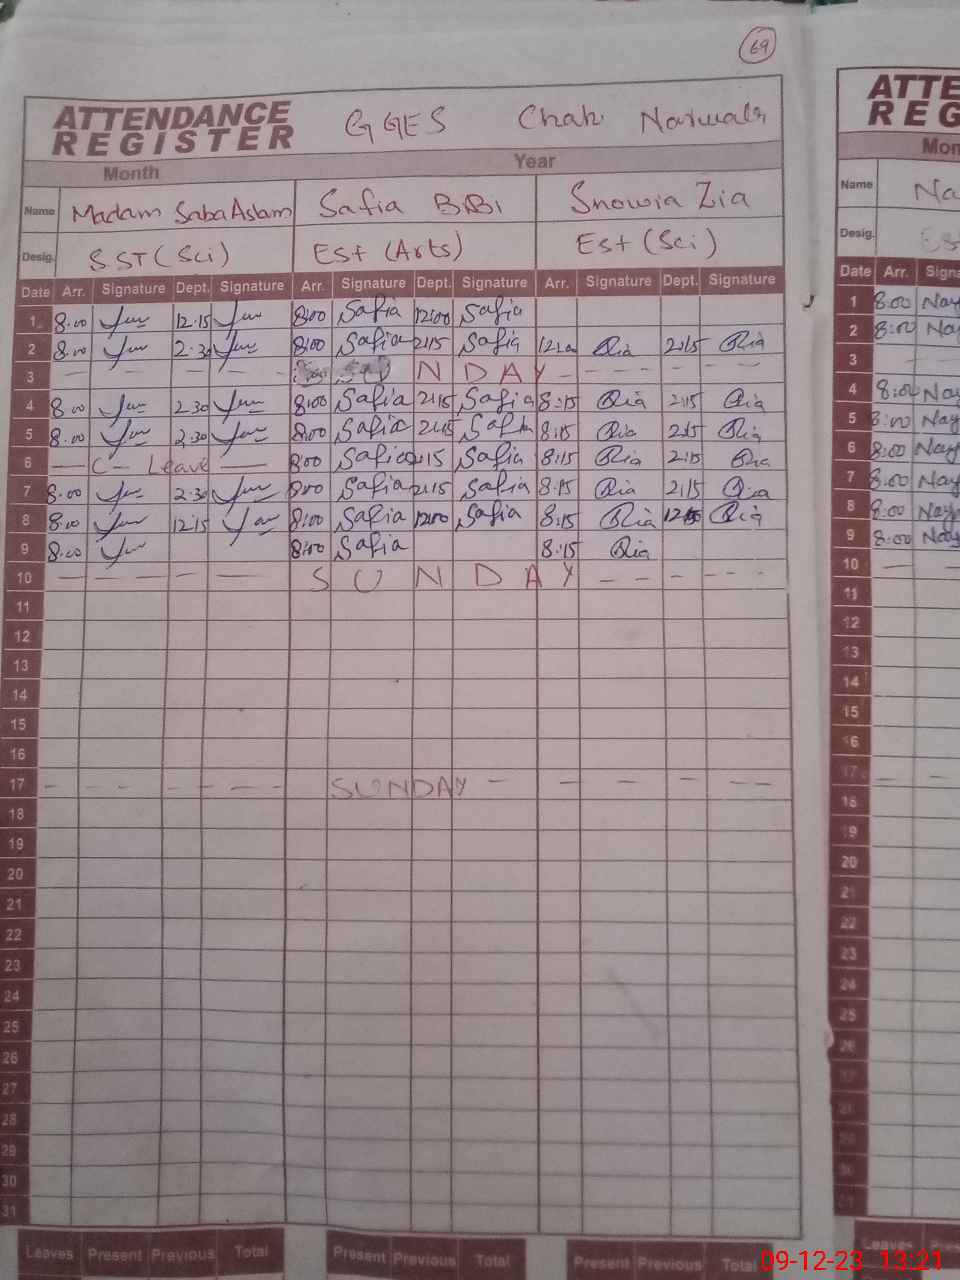 69
ATTENDANCE REGISTER GGES Chak Narwals
Month Year
Name Madam Saba Aslam Safia BiBi Snowia Zia
Desig. SST (Sci) Est (Arts) Est (Sci)
Date Arr. Signature Dept. Signature Arr. Signature Dept. Signature Arr. Signature Dept. Signature
1 8.00 12.15 8:00 Safia 12:00 Safia
2 8.00 2.30 8:00 Safia 2:15 Safia Ria 2:15 Ria
3 SUNDAY
4 8.00 2.30 8:00 Safia 2:15 Safia 8:15 Ria 2:15 Ria
5 8.00 2.30 8:00 Safia 2:15 Safia 8:15 Ria 2:15 Ria
6 C- Leave 8:00 Safia 2:15 Safia 8:15 Ria 2:15 Ria
7 8.00 2.30 8:00 Safia 2:15 Safia 8:15 Ria 2:15 Ria
8 8.00 12.15 8:00 Safia 12:00 Safia 8:15 Ria Ria
9 8.00 8:00 Safia 8:15 Ria
10 SUNDAY
11
12
13
14
15
16
17 SUNDAY
18
19
20
21
22
23
24
25
26
27
28
29
30
31
Leaves Present Previous Total Present Previous Total Present Previous Total
ATTE
REG
Mon
Name Na
Desig. Es
Date Arr. Signa
1 8:00 Nay
2 8:00 Nay
3
4 8:00 Nay
5 8:00 Nay
6 8:00 Nay
7 8:00 Nay
8 8:00 Nay
9 8:00 Nay
10
11
12
13
14
15
16
17
18
19
20
21
22
23
24
25
26
Leaves Pres
09-12-23 13:21